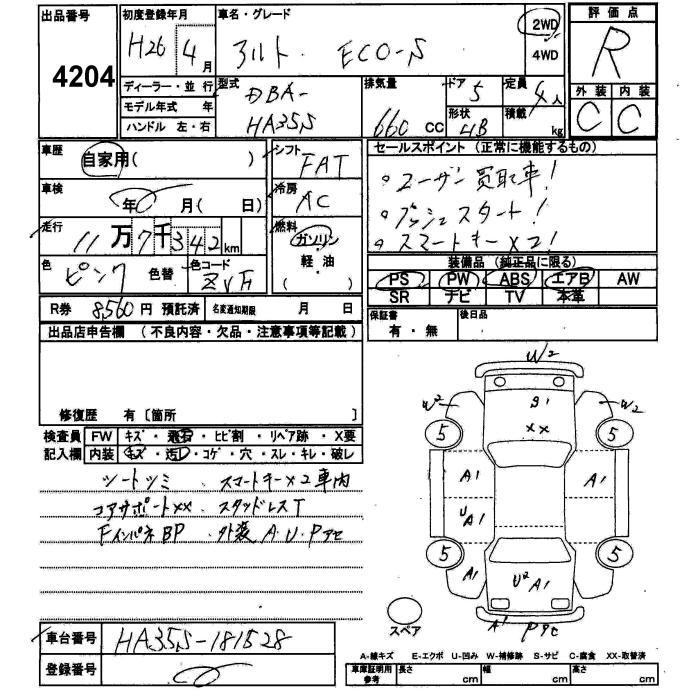 出品番号
4204
初度登録年月
H26 4月
車名・グレード
アルト ECO-S
2WD
4WD
評価点
R
外装 内装
C C
ディーラー・並行
モデル年式 年
ハンドル 左・右
型式
DBA-
HA35S
排気量
660 CC
ドア
5
形状
HB
定員
4人
積載
kg
車歴
自家用( )
車検
年 月( 日)
走行
11万7千342km
色
ピンク
色替
色コード
ZVH
シフト
FAT
冷房
AC
燃料
ガソリン
軽・油
( )
セールスポイント(正常に機能するもの)
。ユーザー買取車!
。プッシュスタート!
。スマートキー×2!
装備品(純正品に限る)
PS PW ABS エアB AW
SR ナビ TV 本革
R券 8,560円 預託済
名変通知期限 月 日
保証書
有・無
後日品
出品店申告欄 (不良内容・欠品・注意事項等記載)
修復歴 有〔箇所 〕
検査員
記入欄
FW キズ・飛石・ヒビ割・リペア跡・X要
内装 キズ・汚レ・コゲ・穴・スレ・キレ・破レ
シートシミ スマートキー×2車内
コアサポート×× スタッドレスT
FインパネBP 外装A.U.Pアセ
車台番号
HA35S-181528
登録番号
W2
W2
W2
S1
××
5
5
A1
A1
U
A1
5
5
A1
U2
A1
A1
スペア
A-線キズ E-エクボ U-凹み W-補修跡 S-サビ C-腐食 XX-取替済
車庫証明用
参考
長さ cm
幅 cm
高さ cm